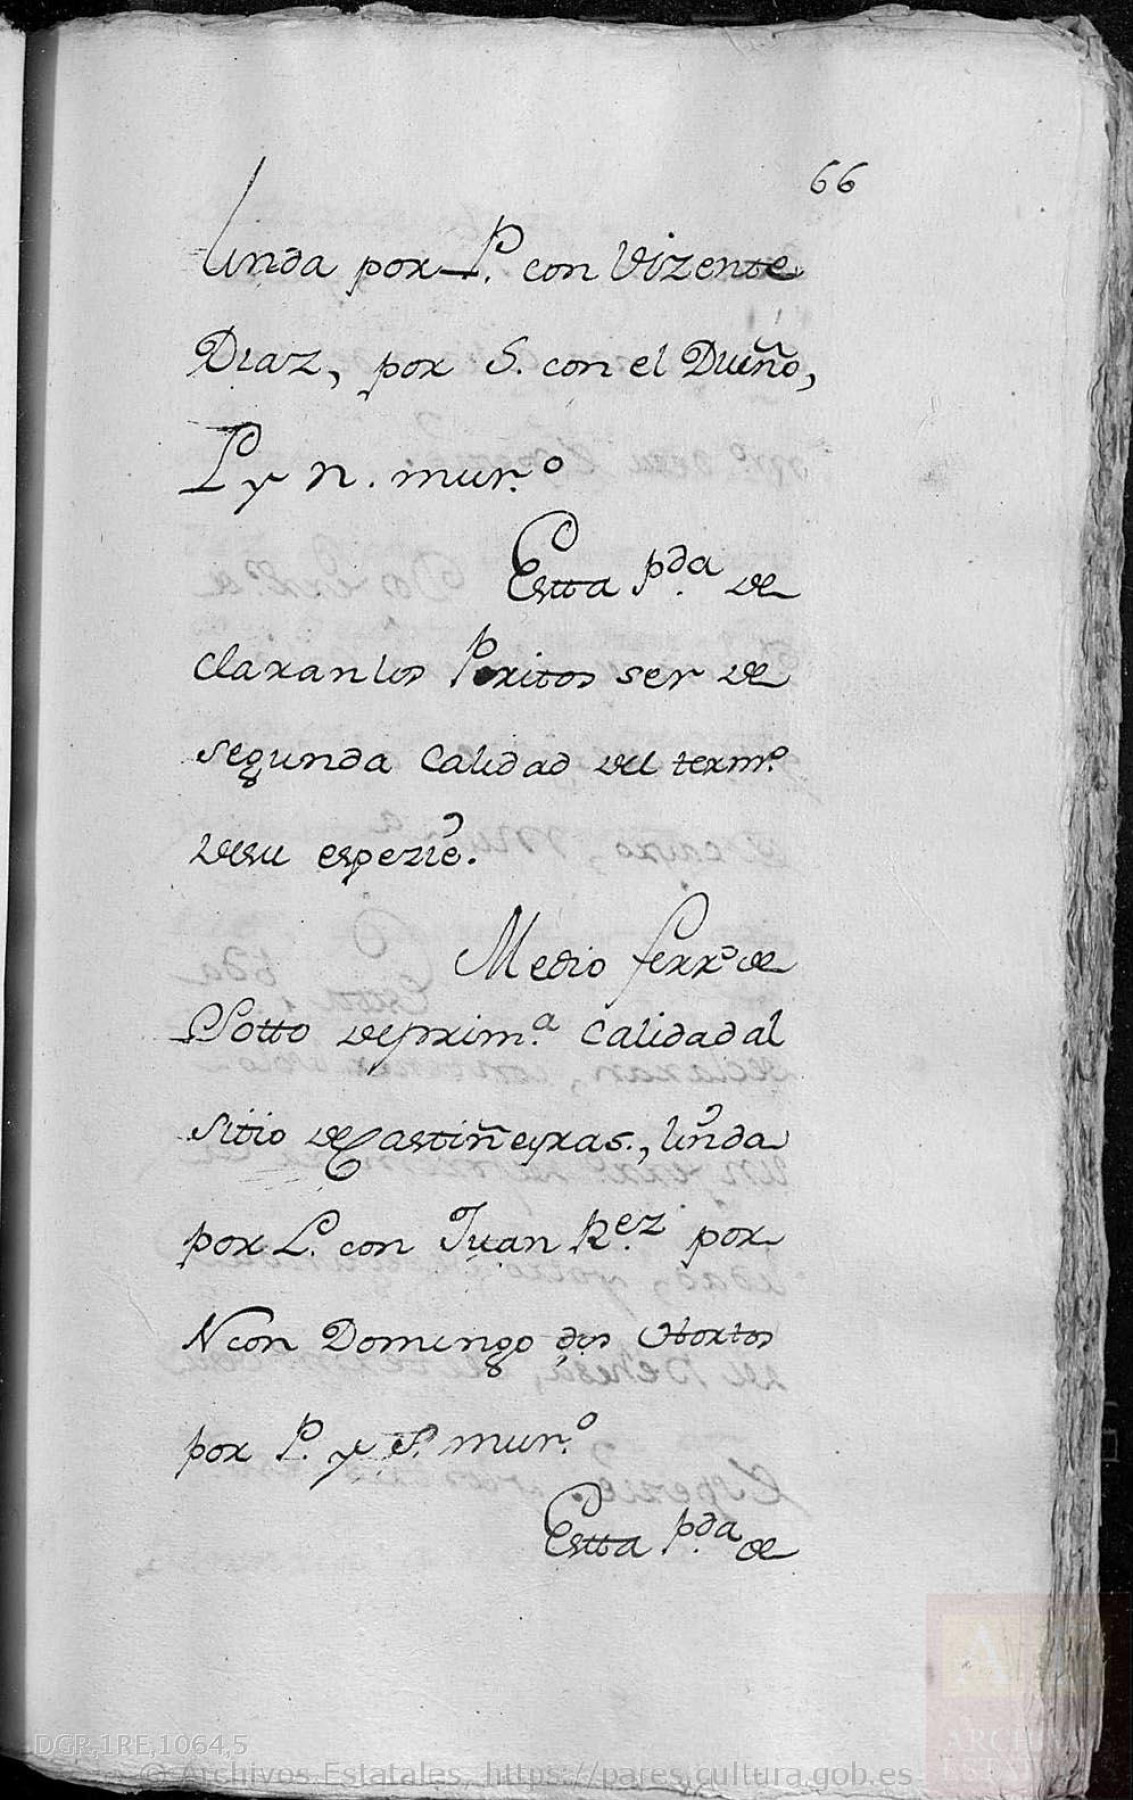 66
linda por P. con Vizente
Diaz, por S. con el Dueño,
L y N. mur.º
Estta p.da de
claran los Peritos ser de
segunda Calidad del term.º
desu espezie.
Medio ferr.º de
Sotto deprim.ª Calidad al
sitio de Castiñeyras., linda
por L. con Juan R.ez por
N con Domingo dos Obortos
por P. y S. mur.º
Estta p.da de
DGR,1RE,1064,5
© Archivos Estatales, https://pares.cultura.gob.es